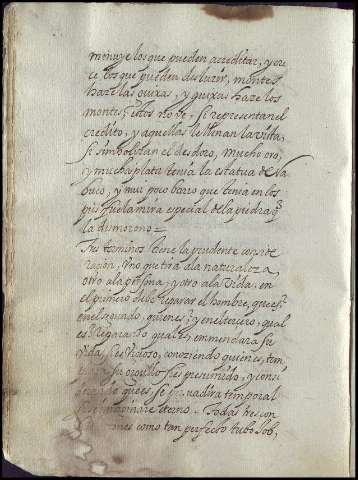 minuye los que pueden acreditar, y cre
ce los que pueden deslucir, montes
haze las guixas, y guixas haze los
montes; estos no ve, si representan el
credito, y aquellas le llenan la vista
si simbolizan el desdoro, mucho oro,
y mucha plata tenia la estatua de Na
buco, y muy poco barro que tenia en los
pies fue la mira especial de la piedra q
la dumorono =
Tres terminos tiene la prudente conside
racion, Vno que tira a la naturaleza,
otro a la persona, y otro a la Vida, en
el primero debe reparar el hombre, que es;
en el segundo, quien es; y en el tercero, qual
es; reparando qual es, emmendara su
vida, si es vicioso, conoziendo quien es, tem
su orgullo si es presumido, y consi
que es, se persuadira temporal
imaginare eterno. = Todas tres con
ciones como tan perfecto tubo Job,